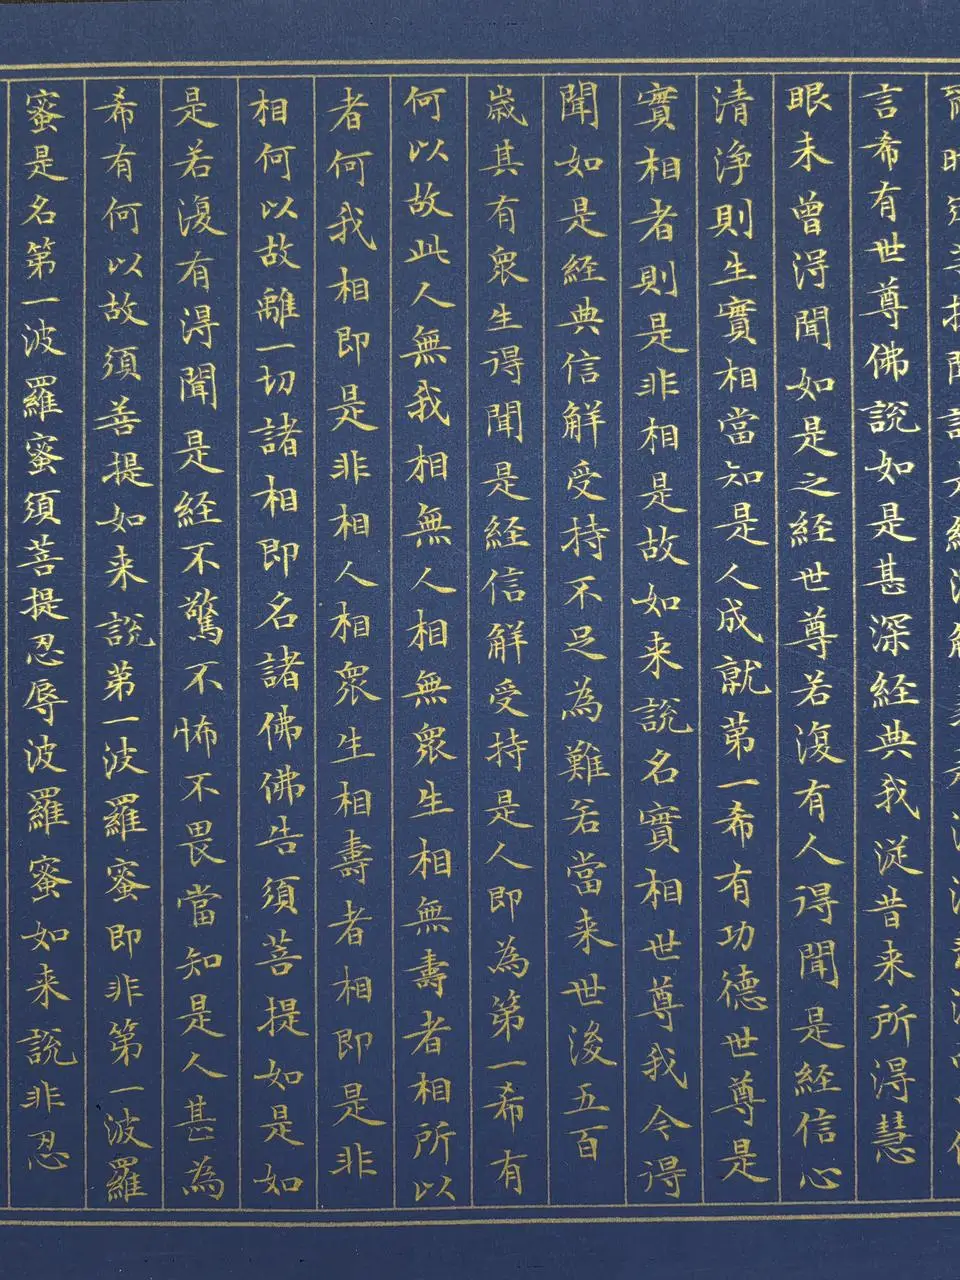 言希有世尊佛說如是甚深経典我従昔来所得慧
眼未曾得聞如是之経世尊若復有人得聞是経信心
清淨則生實相當知是人成就第一希有功德世尊是
實相者則是非相是故如来說名實相世尊我今得
聞如是経典信解受持不足為難若當来世後五百
歲其有眾生得聞是経信解受持是人即為第一希有
何以故此人無我相無人相無眾生相無壽者相所以
者何我相即是非相人相眾生相壽者相即是非
相何以故離一切諸相即名諸佛佛告須菩提如是如
是若復有得聞是経不驚不怖不畏當知是人甚為
希有何以故須菩提如来說第一波羅蜜即非第一波羅
蜜是名第一波羅蜜須菩提忍辱波羅蜜如来說非忍